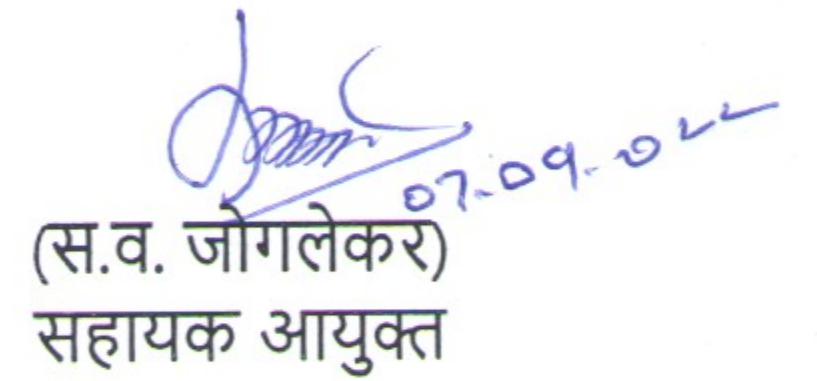 07.09.022
(स.व. जोगलेकर)
सहायक आयुक्त